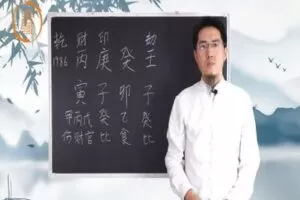 乾 财 印 劫
1986 丙 庚 癸 壬
寅 子 卯 子
甲丙戊 癸 乙 癸
伤财官 比 食 比